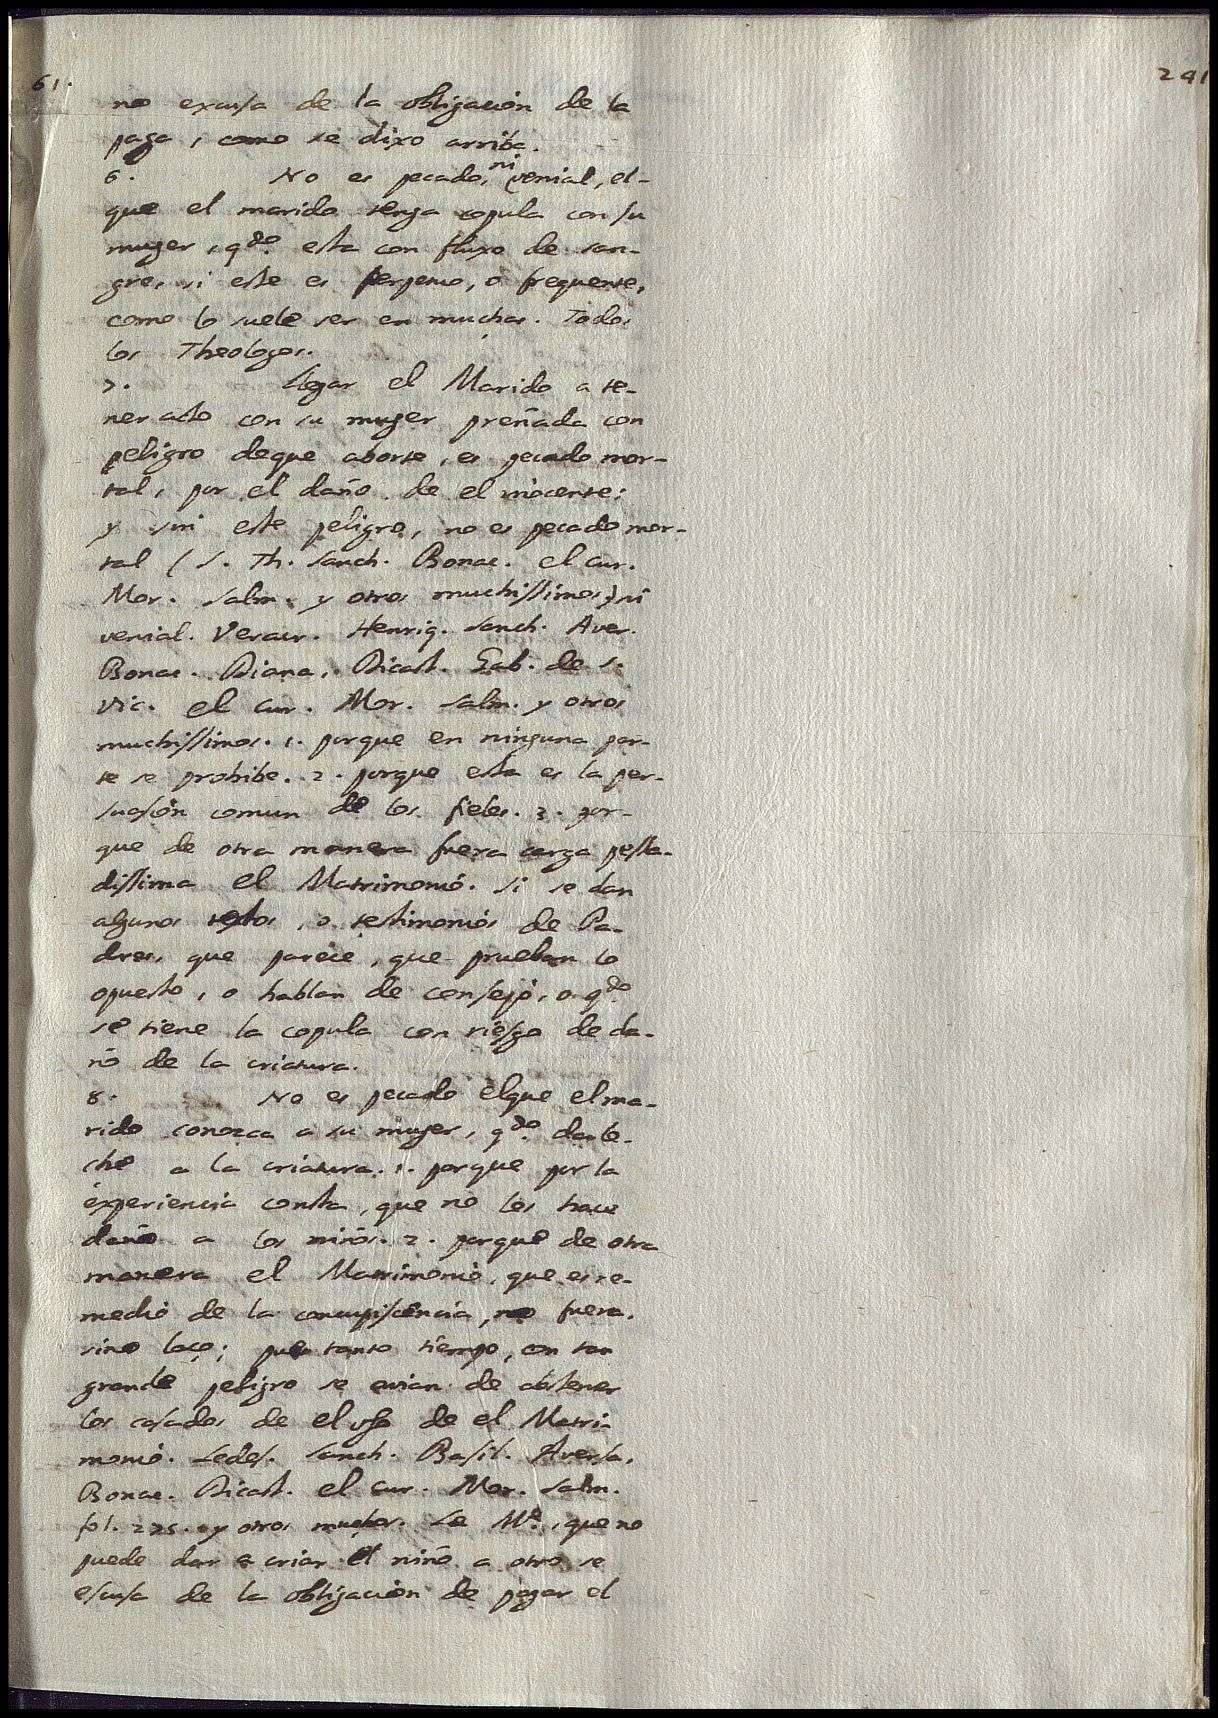 61.
241
no excusa de la obligacion de la
paga, como se dixo arriba.
6. No es pecado, ni venial, el-
que el marido tenga copula con su
muger, qdo. esta con fluxo de san-
gre, si este es perpetuo, o frequente,
como lo suele ser en muchas. Todos
los Theologos.
7. Llegar el Marido a te-
ner acto con su muger preñada con
peligro deque aborte, es pecado mor-
tal, por el daño de el inocente:
y sin este peligro, no es pecado mor-
tal (S. Th. Sanch. Bonac. el Cur.
Mor. Salm. y otros muchissimos) ni
venial. Veracr. Henriq. Sanch. Aver.
Bonac. Diana, Dicast. Gab. de S.
Vic. el Cur. Mor. Salm. y otros
muchissimos. 1. porque en ninguna par-
te se prohibe. 2. porque esta es la per-
suasion comun de los fieles. 3. por-
que de otra manera fuera carga pessa-
dissima el Matrimonio. Si se dan
algunos textos, o testimonios de Pa-
dres, que parece, que prueban lo
opuesto, o hablan de consejo, o qdo.
se tiene la copula con riesgo de da-
ño de la criatura.
8. No es pecado elque el ma-
rido conozca a su muger, qdo. da le-
che a la criatura. 1. porque por la
experiencia consta, que no les hace
daño a los niños. 2. porque de otra
manera el Matrimonio, que es re-
medio de la concupiscencia, no fuera,
sino laço; pues tanto tiempo, con tan
grande peligro se avian de abstener
los casados de el uso de el Matri-
monio. Ledes. Sanch. Basil. Aversa,
Bonac. Dicast. el Cur. Mor. Salm.
fol. 225. y otros muchos. La Me. que no
puede dar a criar el niño a otro se
escusa de la obligacion de pagar el